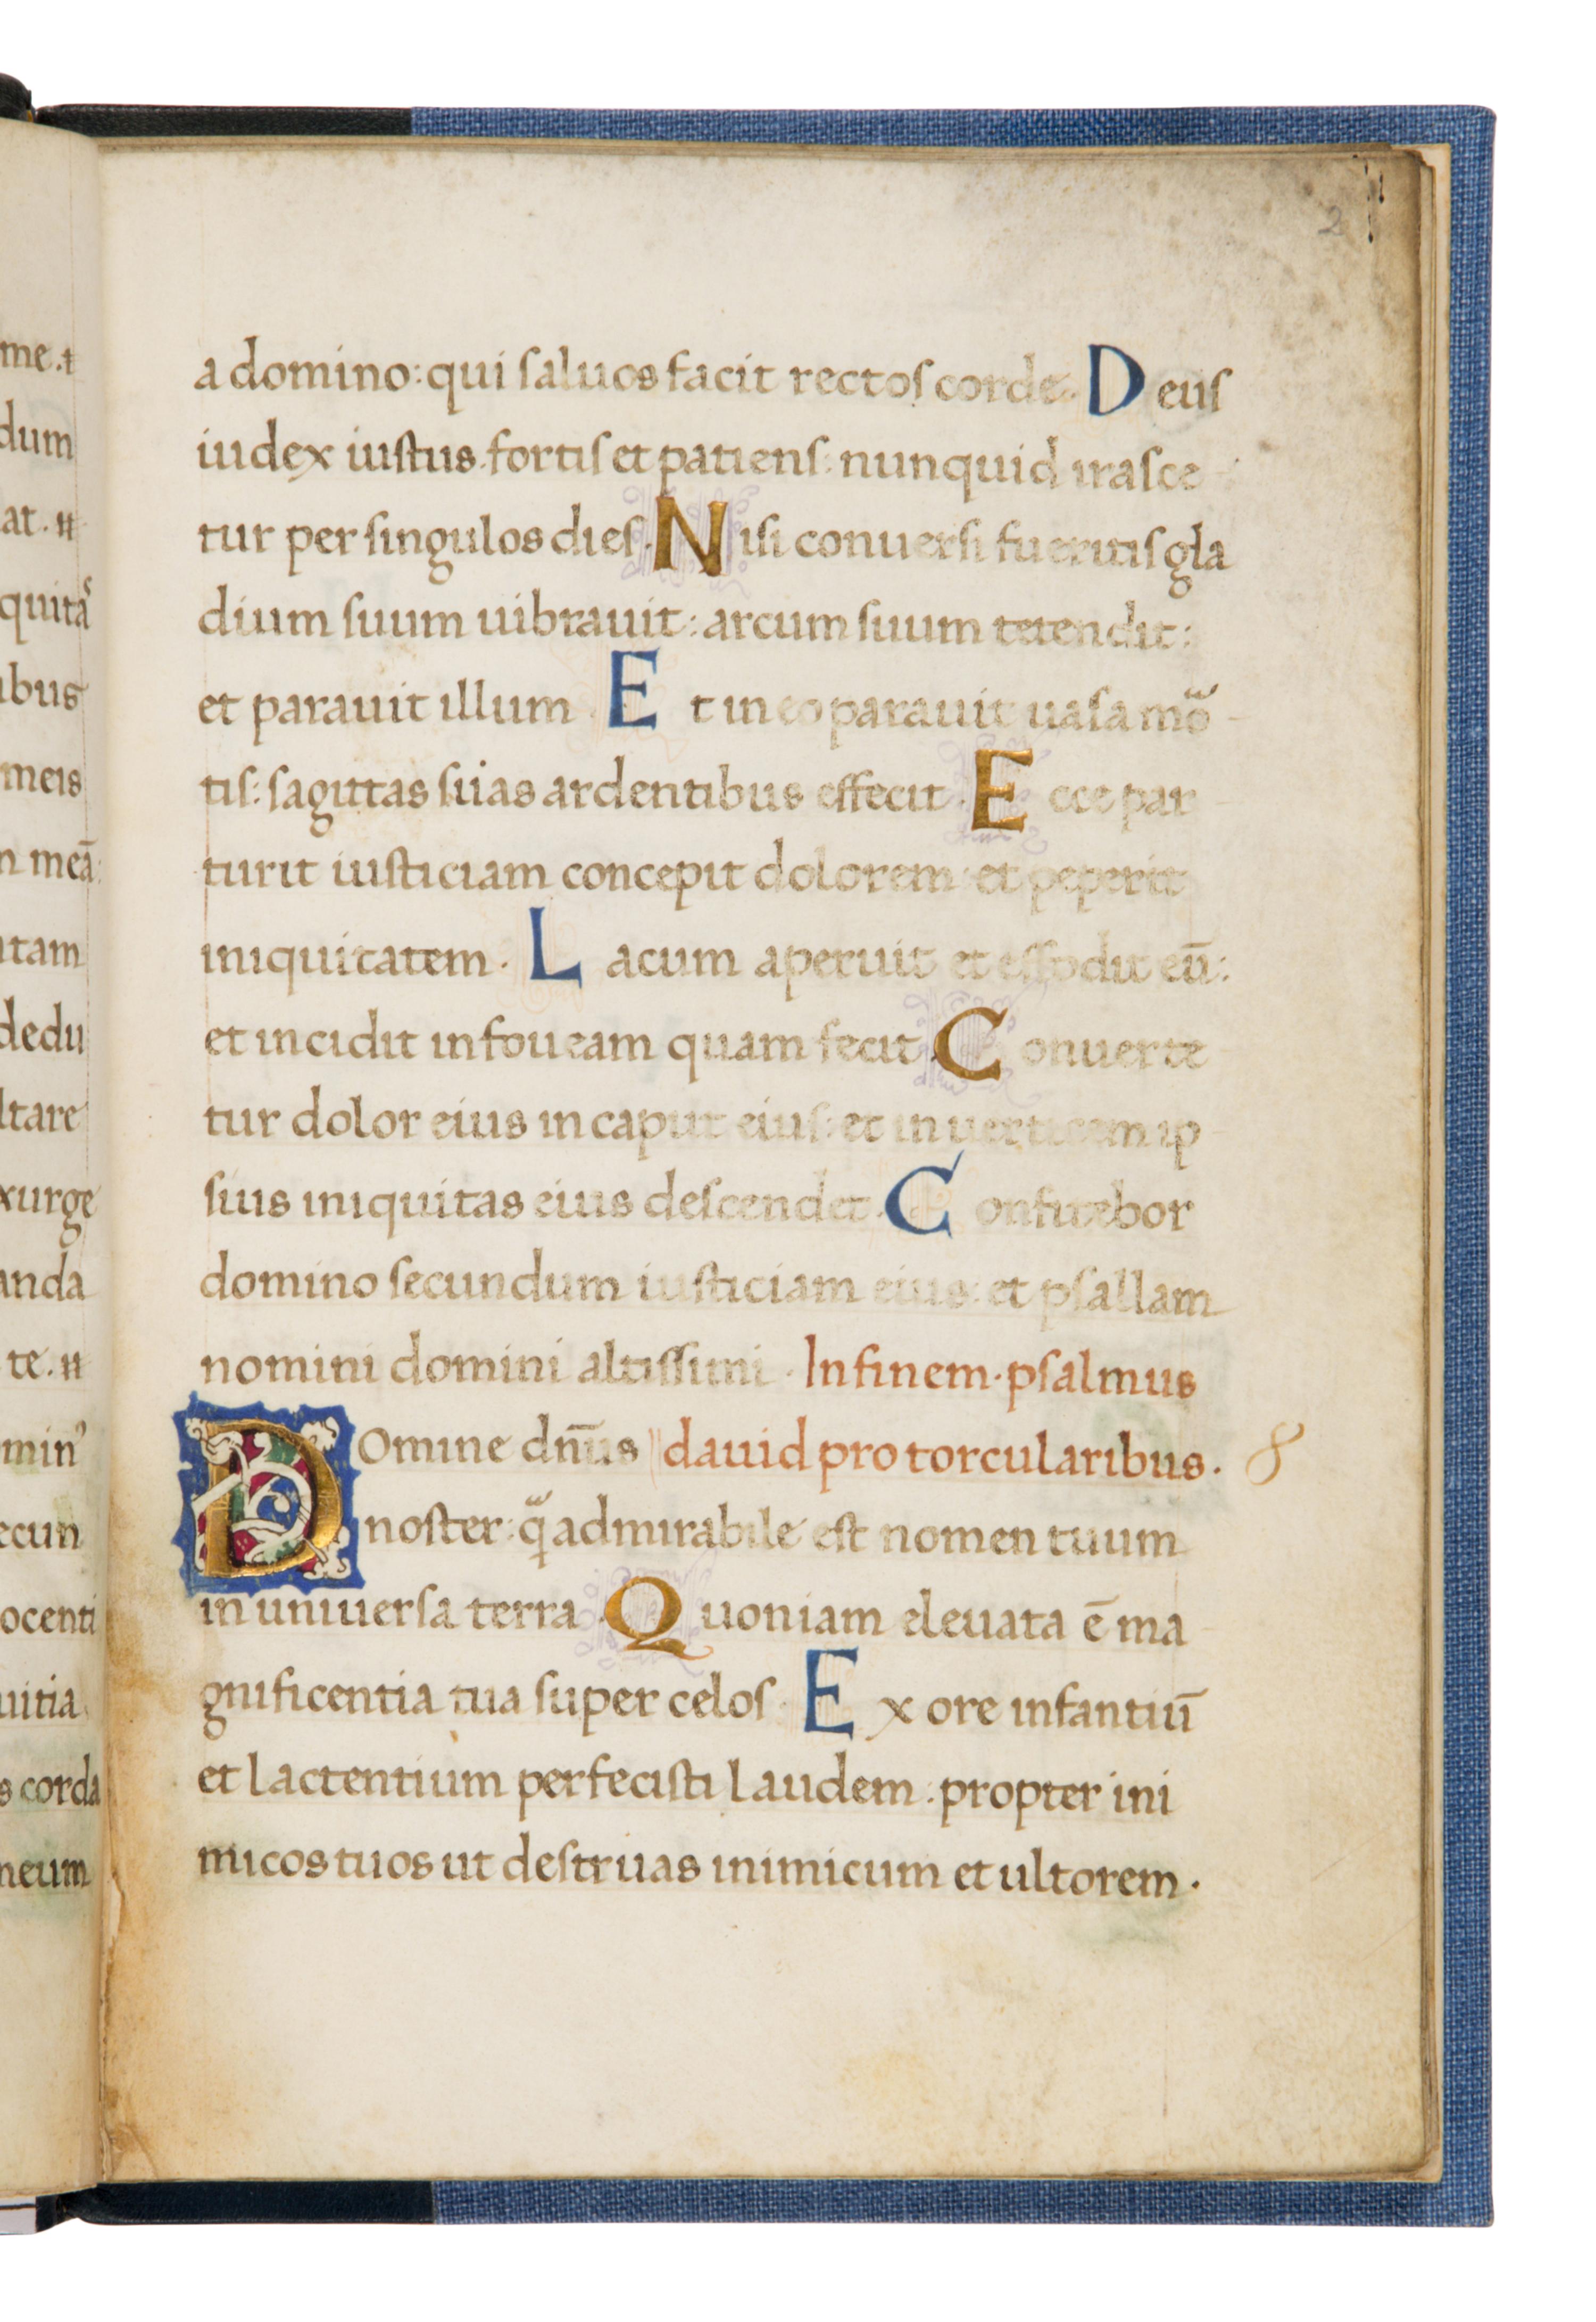 me.⁊
dum
at. ıı
quita͛s
ibus
meis
n meā:
itam
dedu
ltare
xurge
anda
te. ıı
min⁹
ecun
ocenti
uitia
s corda
meum
2
a domino: qui ſaluos facit rectoſ corde. Deuſ
iudex iuſtus. fortiſ et patienſ: nunquid iraſce
tur per ſingulos dieſ. Niſi conuerſi fueritiſ gla
dium ſuum uibrauit: arcum ſuum tetendit:
et parauit illum. Et in eo parauit uaſa mõ
tiſ: ſagittas ſuas ardentibus effecit. Ecce par
turit iuſticiam concepit dolorem: et peperit
iniquitatem. Lacum aperuit et effodit eū:
et incidit in foueam quam fecit. Conuerte
tur dolor eius in caput eiuſ: et in uerticem ip
ſius iniquitas eius deſcendet. Confitebor
domino ſecundum iuſticiam eius: et pſallam
nomini domini altiſſimi. In finem. pſalmus
DOmine dn̄us dauid pro torcularibus. 8
noſter: q̃ admirabile eſt nomen tuum
in uniuerſa terra. Quoniam eleuata ē ma
gnificentia tua ſuper celoſ. Ex ore infantiū
et lactentium perfeciſti laudem: propter ini
micos tuos ut deſtruas inimicum et ultorem.